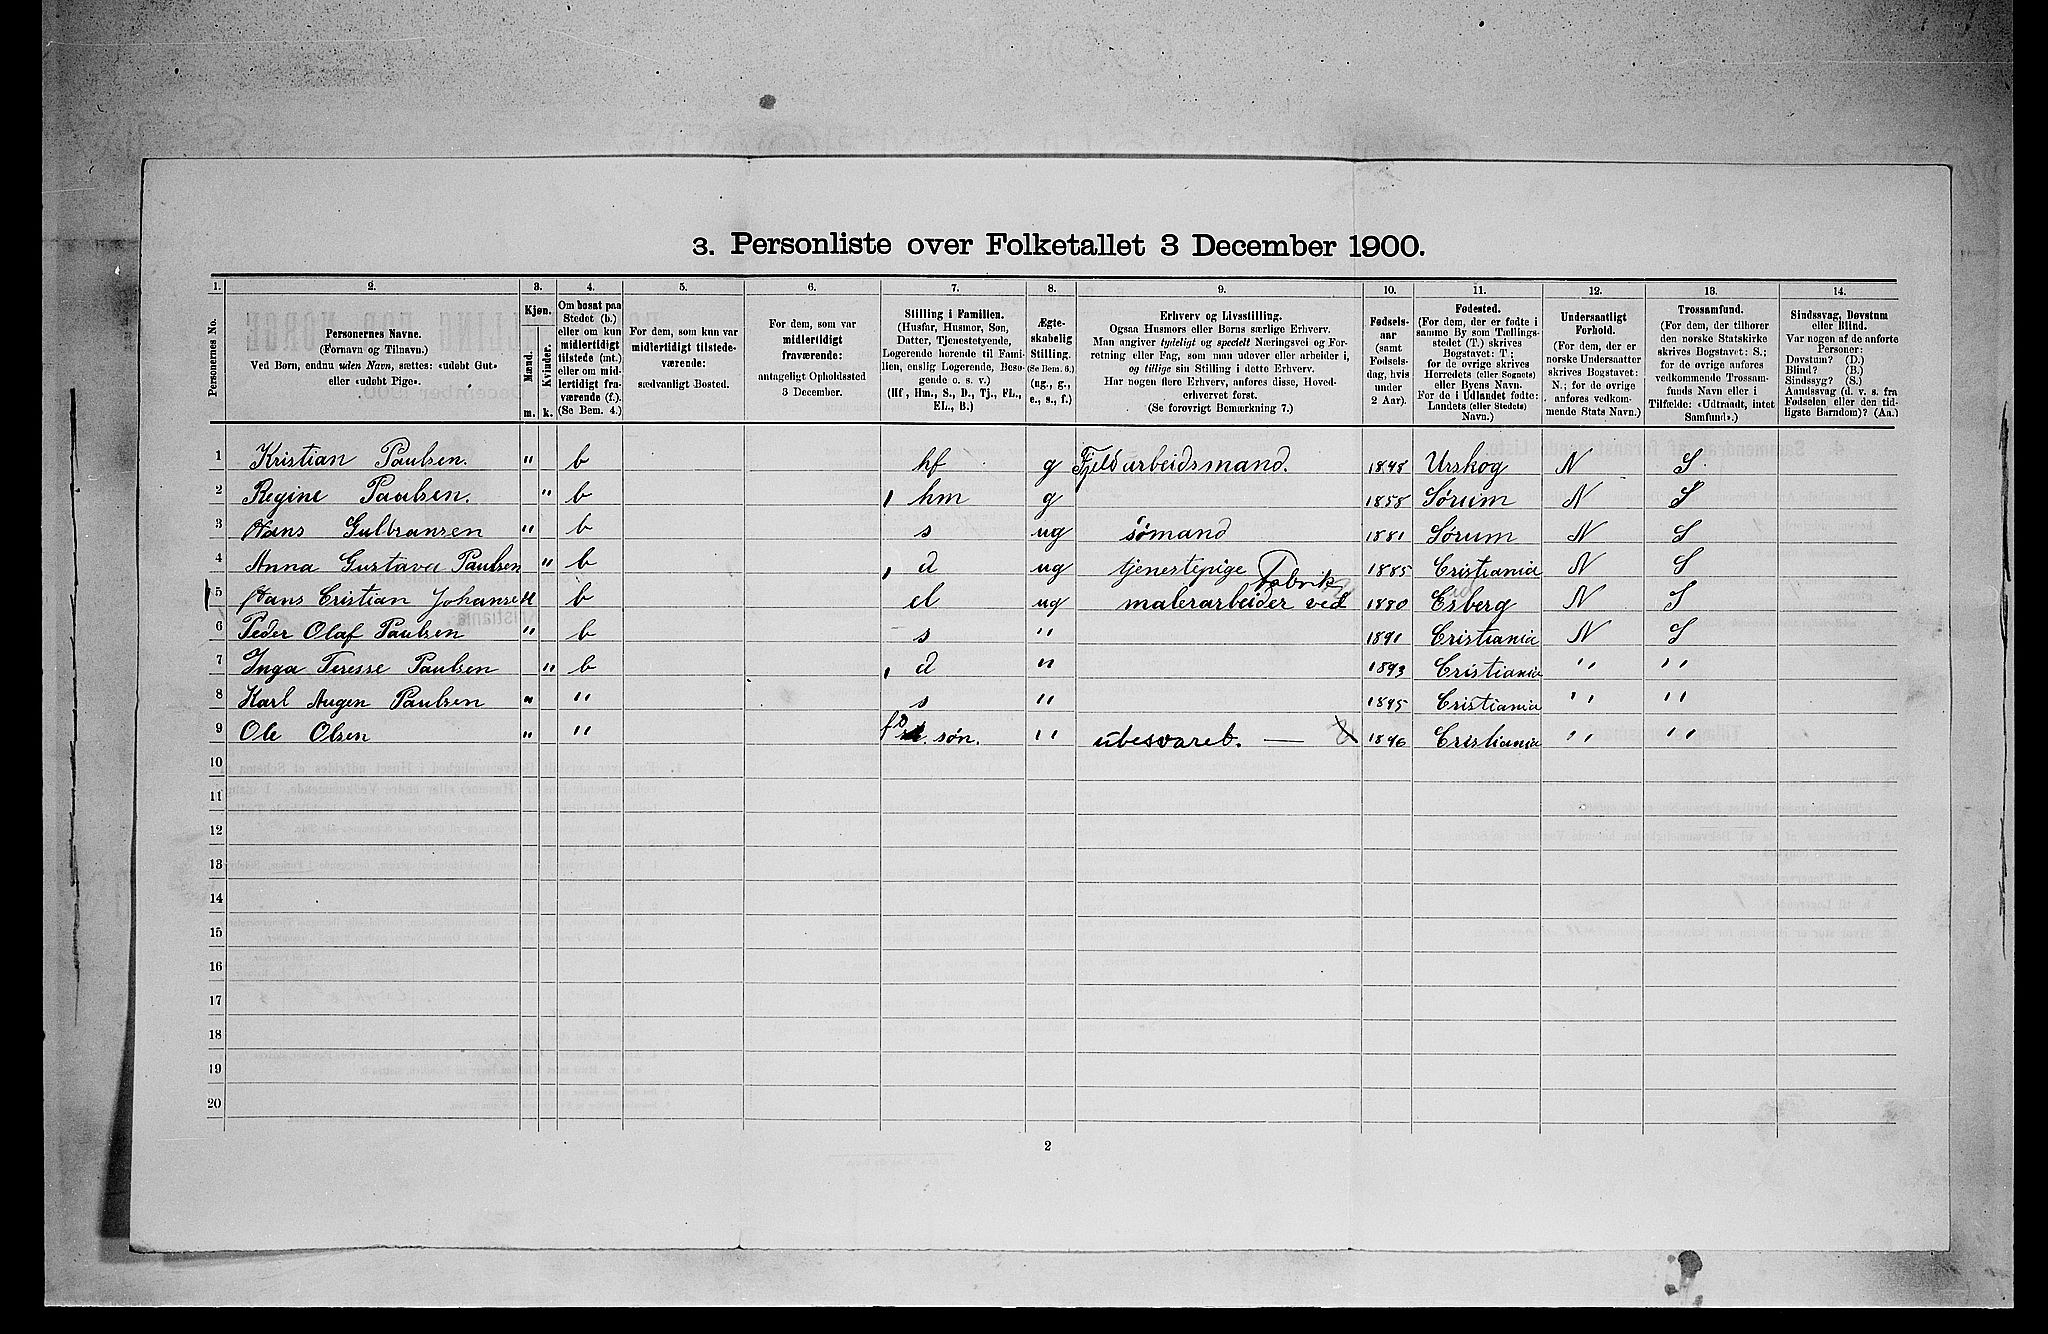 3. Personliste over Folketallet 3 December 1900.
1. 2. 3. 4. 5. 6. 7. 8. 9. 10. 11. 12. 13. 14.
Personernes No.
Personernes Navne.
(Fornavn og Tilnavn.)
Ved Børn, endnu uden Navn, sættes: «udøbt Gut»
eller «udøbt Pige».
Kjøn.
Mænd.
Kvinder.
m. k.
Om bosat paa
Stedet (b.)
eller om kun
midlertidigt
tilstede (mt.)
eller om mid-
lertidigt fra-
værende (f.).
(Se Bem. 4.)
For dem, som kun var
midlertidigt tilstede-
værende:
sædvanligt Bosted.
For dem, som var
midlertidigt
fraværende:
antageligt Opholdssted
3 December.
Stilling i Familien.
(Husfar, Husmor, Søn,
Datter, Tjenestetyende,
Logerende hørende til Fami-
lien, enslig Logerende, Besø-
gende o. s. v.)
(Hf., Hm., S., D., Tj., FL.,
EL., B.)
Ægte-
skabelig
Stilling.
(Se Bem. 6.)
(ug., g.,
e., s., f.)
Erhverv og Livsstilling.
Ogsaa Husmors eller Børns særlige Erhverv.
Man angiver tydeligt og specielt Næringsvei og For-
retning eller Fag, som man udøver eller arbeider i,
og tillige sin Stilling i dette Erhverv.
Har nogen flere Erhverv, anføres disse, Hoved-
erhvervet først.
(Se forøvrigt Bemærkning 7.)
Fødsels-
aar
(samt
Fødsels-
dag, hvis
under
2 Aar).
Fødested.
(For dem, der er fødte i
samme By som Tællings-
stedet (T.) skrives
Bogstavet: T;
for de øvrige skrives
Herredets (eller Sognets)
eller Byens Navn.
For de i Udlandet fødte:
Landets (eller Stedets)
Navn.)
Undersaatligt
Forhold.
(For dem, der er
norske Undersaatter
skrives Bogstavet:
N.; for de øvrige
anføres vedkom-
mende Stats Navn.)
Trossamfund.
(For dem, der tilhører
den norske Statskirke
skrives Bogstavet: S.;
for de øvrige anføres
vedkommende Trossam-
funds Navn eller i
Tilfælde: «Udtraadt, intet
Samfund».)
Sindssvag, Døvstum
eller Blind.
Var nogen af de anførte
Personer:
Døvstum? (D.)
Blind? (B.)
Sindssyg? (S.)
Aandssvag (d. v. s. fra
Fødselen eller den tid-
ligste Barndom)? (Aa.)
1 Kristian Paulsen. " b hf g Fjeldarbeidsmand. 1848 Urskog N S
2 Regine Paulsen. " b hm g 1858 Sørum N S
3 Hans Gulbransen " b s ug sømand 1881 Sørum N S
4 Anna Gustava Paulsen " b d ug tjenestepige 1885 Cristiania N S
Fabrik
5 Hans Cristian Johansen b el ug malerarbeider ved 1880 Esberg N S
6 Peder Olaf Paulsen " b s " 1891 Cristiania N S
7 Inga Teresse Paulsen " b d " 1893 Cristiania " "
8 Karl Augen Paulsen " " s " 1895 Cristiania " "
9 Ole Olsen " " søn. " ubesvareb. — 1896 Cristiania " "
10
11
12
13
14
15
16
17
18
19
20
2